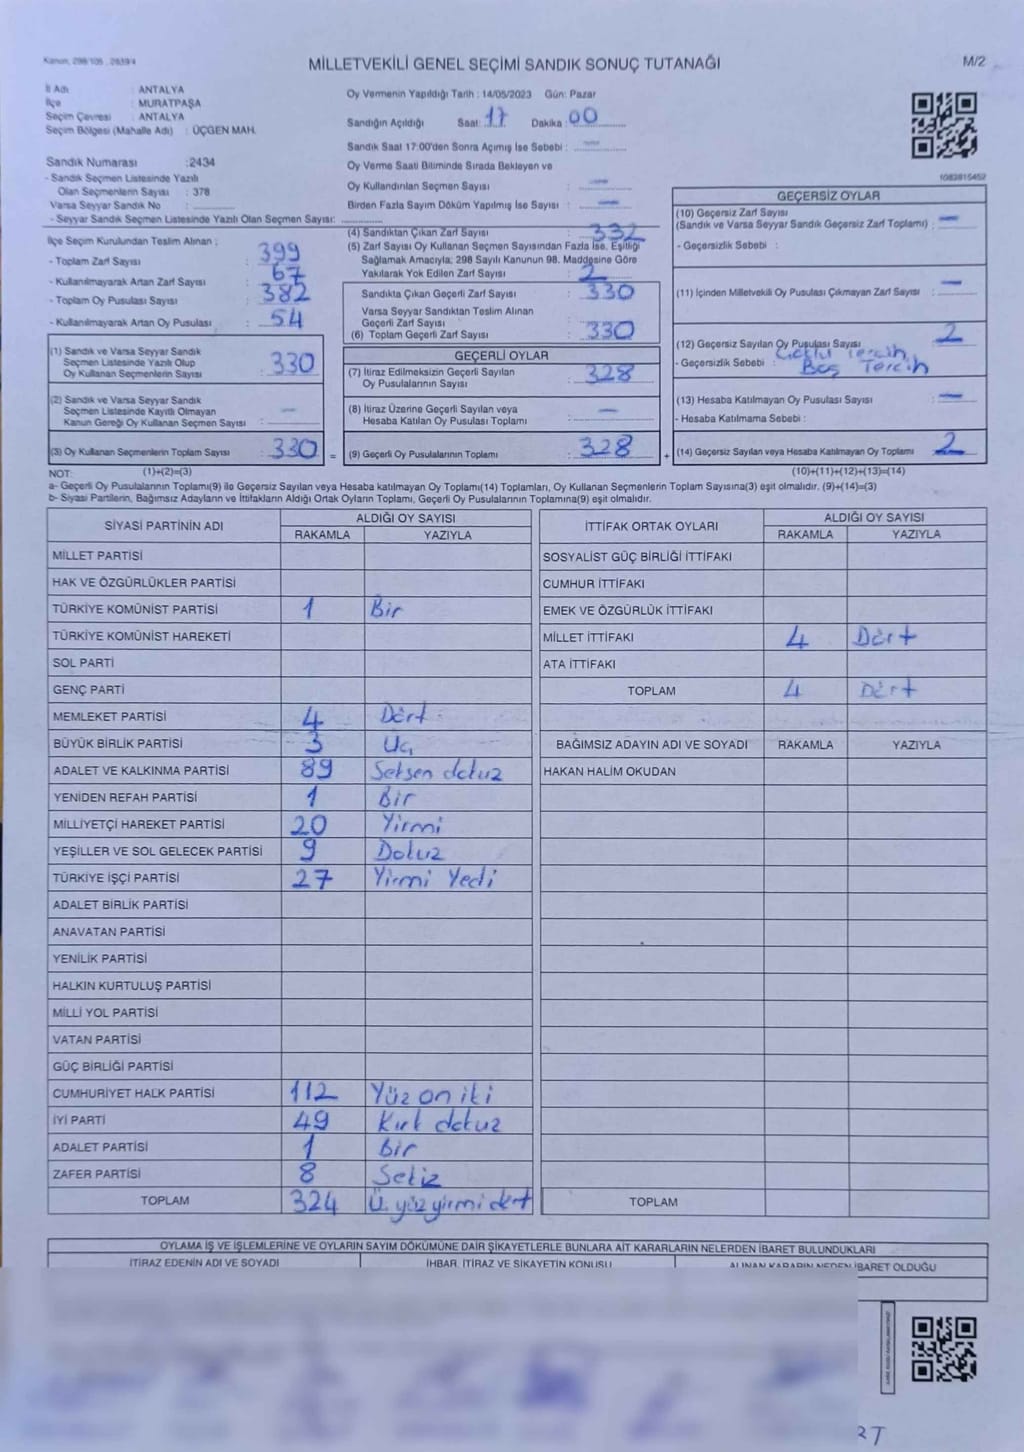 Kanun, 298/105 , 2839/4
MİLLETVEKİLİ GENEL SEÇİMİ SANDIK SONUÇ TUTANAĞI
M/2
İl Adı : ANTALYA
İlçe : MURATPAŞA
Seçim Çevresi : ANTALYA
Seçim Bölgesi (Mahalle Adı) : ÜÇGEN MAH.
Sandık Numarası :2434
- Sandık Seçmen Listesinde Yazılı
Olan Seçmenlerin Sayısı : 378
Varsa Seyyar Sandık No :
- Seyyar Sandık Seçmen Listesinde Yazılı Olan Seçmen Sayısı:
Oy Vermenin Yapıldığı Tarih : 14/05/2023 Gün: Pazar
Sandığın Açıldığı Saat: 17 Dakika: 00
Sandık Saat 17:00'den Sonra Açımış İse Sebebi : —
Oy Verme Saati Bitiminde Sırada Bekleyen ve
Oy Kullandırılan Seçmen Sayısı : —
Birden Fazla Sayım Döküm Yapılmış İse Sayısı : —
1082815452
İlçe Seçim Kurulundan Teslim Alınan ;
- Toplam Zarf Sayısı : 399
- Kullanılmayarak Artan Zarf Sayısı : 67
- Toplam Oy Pusulası Sayısı : 382
- Kullanılmayarak Artan Oy Pusulası : 54
(1) Sandık ve Varsa Seyyar Sandık
Seçmen Listesinde Yazılı Olup
Oy Kullanan Seçmenlerin Sayısı : 330
(2) Sandık ve Varsa Seyyar Sandık
Seçmen Listesinde Kayıtlı Olmayan
Kanun Gereği Oy Kullanan Seçmen Sayısı : —
(3) Oy Kullanan Seçmenlerin Toplam Sayısı : 330 =
(4) Sandıktan Çıkan Zarf Sayısı : 332
(5) Zarf Sayısı Oy Kullanan Seçmen Sayısından Fazla İse, Eşitliği
Sağlamak Amacıyla, 298 Sayılı Kanunun 98. Maddesine Göre
Yakılarak Yok Edilen Zarf Sayısı : 2
Sandıkta Çıkan Geçerli Zarf Sayısı : 330
Varsa Seyyar Sandıktan Teslim Alınan
Geçerli Zarf Sayısı :
(6) Toplam Geçerli Zarf Sayısı : 330
GEÇERLİ OYLAR
(7) İtiraz Edilmeksizin Geçerli Sayılan
Oy Pusulalarının Sayısı : 328
(8) İtiraz Üzerine Geçerli Sayılan veya
Hesaba Katılan Oy Pusulası Toplamı : —
(9) Geçerli Oy Pusulalarının Toplamı : 328 +
GEÇERSİZ OYLAR
(10) Geçersiz Zarf Sayısı
(Sandık ve Varsa Seyyar Sandık Geçersiz Zarf Toplamı) : —
- Geçersizlik Sebebi :
(11) İçinden Milletvekili Oy Pusulası Çıkmayan Zarf Sayısı : —
(12) Geçersiz Sayılan Oy Pusulası Sayısı : 2
- Geçersizlik Sebebi : Çoklu Tercih
Boş Tercih
(13) Hesaba Katılmayan Oy Pusulası Sayısı : —
- Hesaba Katılmama Sebebi :
(14) Geçersiz Sayılan veya Hesaba Katılmayan Oy Toplamı : 2
NOT: (1)+(2)=(3) (10)+(11)+(12)+(13)=(14)
a- Geçerli Oy Pusulalarının Toplamı(9) ile Geçersiz Sayılan veya Hesaba katılmayan Oy Toplamı(14) Toplamları, Oy Kullanan Seçmenlerin Toplam Sayısına(3) eşit olmalıdır. (9)+(14)=(3)
b- Siyasi Partilerin, Bağımsız Adayların ve İttifakların Aldığı Ortak Oyların Toplamı, Geçerli Oy Pusulalarının Toplamına(9) eşit olmalıdır.
SİYASİ PARTİNİN ADI ALDIĞI OY SAYISI
RAKAMLA YAZIYLA
MİLLET PARTİSİ
HAK VE ÖZGÜRLÜKLER PARTİSİ
TÜRKİYE KOMÜNİST PARTİSİ 1 Bir
TÜRKİYE KOMÜNİST HAREKETİ
SOL PARTİ
GENÇ PARTİ
MEMLEKET PARTİSİ 4 Dört
BÜYÜK BİRLİK PARTİSİ 3 Üç
ADALET VE KALKINMA PARTİSİ 89 Seksen dokuz
YENİDEN REFAH PARTİSİ 1 Bir
MİLLİYETÇİ HAREKET PARTİSİ 20 Yirmi
YEŞİLLER VE SOL GELECEK PARTİSİ 9 Dokuz
TÜRKİYE İŞÇİ PARTİSİ 27 Yirmi Yedi
ADALET BİRLİK PARTİSİ
ANAVATAN PARTİSİ
YENİLİK PARTİSİ
HALKIN KURTULUŞ PARTİSİ
MİLLİ YOL PARTİSİ
VATAN PARTİSİ
GÜÇ BİRLİĞİ PARTİSİ
CUMHURİYET HALK PARTİSİ 112 Yüz on iki
İYİ PARTİ 49 Kırk dokuz
ADALET PARTİSİ 1 Bir
ZAFER PARTİSİ 8 Sekiz
TOPLAM 324 Üçyüzyirmi dört
İTTİFAK ORTAK OYLARI ALDIĞI OY SAYISI
RAKAMLA YAZIYLA
SOSYALİST GÜÇ BİRLİĞİ İTTİFAKI
CUMHUR İTTİFAKI
EMEK VE ÖZGÜRLÜK İTTİFAKI
MİLLET İTTİFAKI 4 Dört
ATA İTTİFAKI
TOPLAM 4 Dört
BAĞIMSIZ ADAYIN ADI VE SOYADI RAKAMLA YAZIYLA
HAKAN HALİM OKUDAN
TOPLAM
OYLAMA İŞ VE İŞLEMLERİNE VE OYLARIN SAYIM DÖKÜMÜNE DAİR ŞİKAYETLERLE BUNLARA AİT KARARLARIN NELERDEN İBARET BULUNDUKLARI
İTİRAZ EDENİN ADI VE SOYADI İHBAR, İTİRAZ VE ŞİKAYETİN KONUSU ALINAN KARARIN NEDEN İBARET OLDUĞU